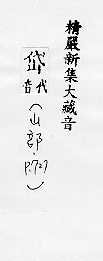 精嚴新集大藏音
岱
代音
(山部.p.727)